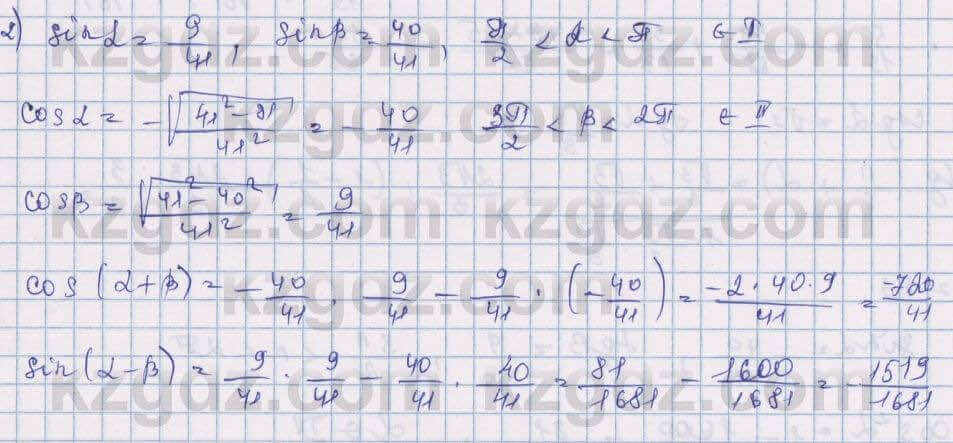 2) sinα = 9/41, sinβ = 40/41, π/2 < α < π ∈ I
cosα = -√((41² - 91)/41²) = -40/41 3π/2 < β < 2π ∈ II
cosβ = √((41² - 40²)/41²) = 9/41
cos(α+β) = -40/41 · 9/41 - 9/41 · (-40/41) = (-2·40·9)/41 = -720/41
sin(α-β) = 9/41 · 9/41 - 40/41 · 40/41 = 81/1681 - 1600/1681 = -1519/1681
kzgdz.com kzgdz.com
kzgdz.com kzgdz.com
kzgdz.com kzgdz.com
kzgdz.com kzgdz.com
kzgdz.com kzgdz.com